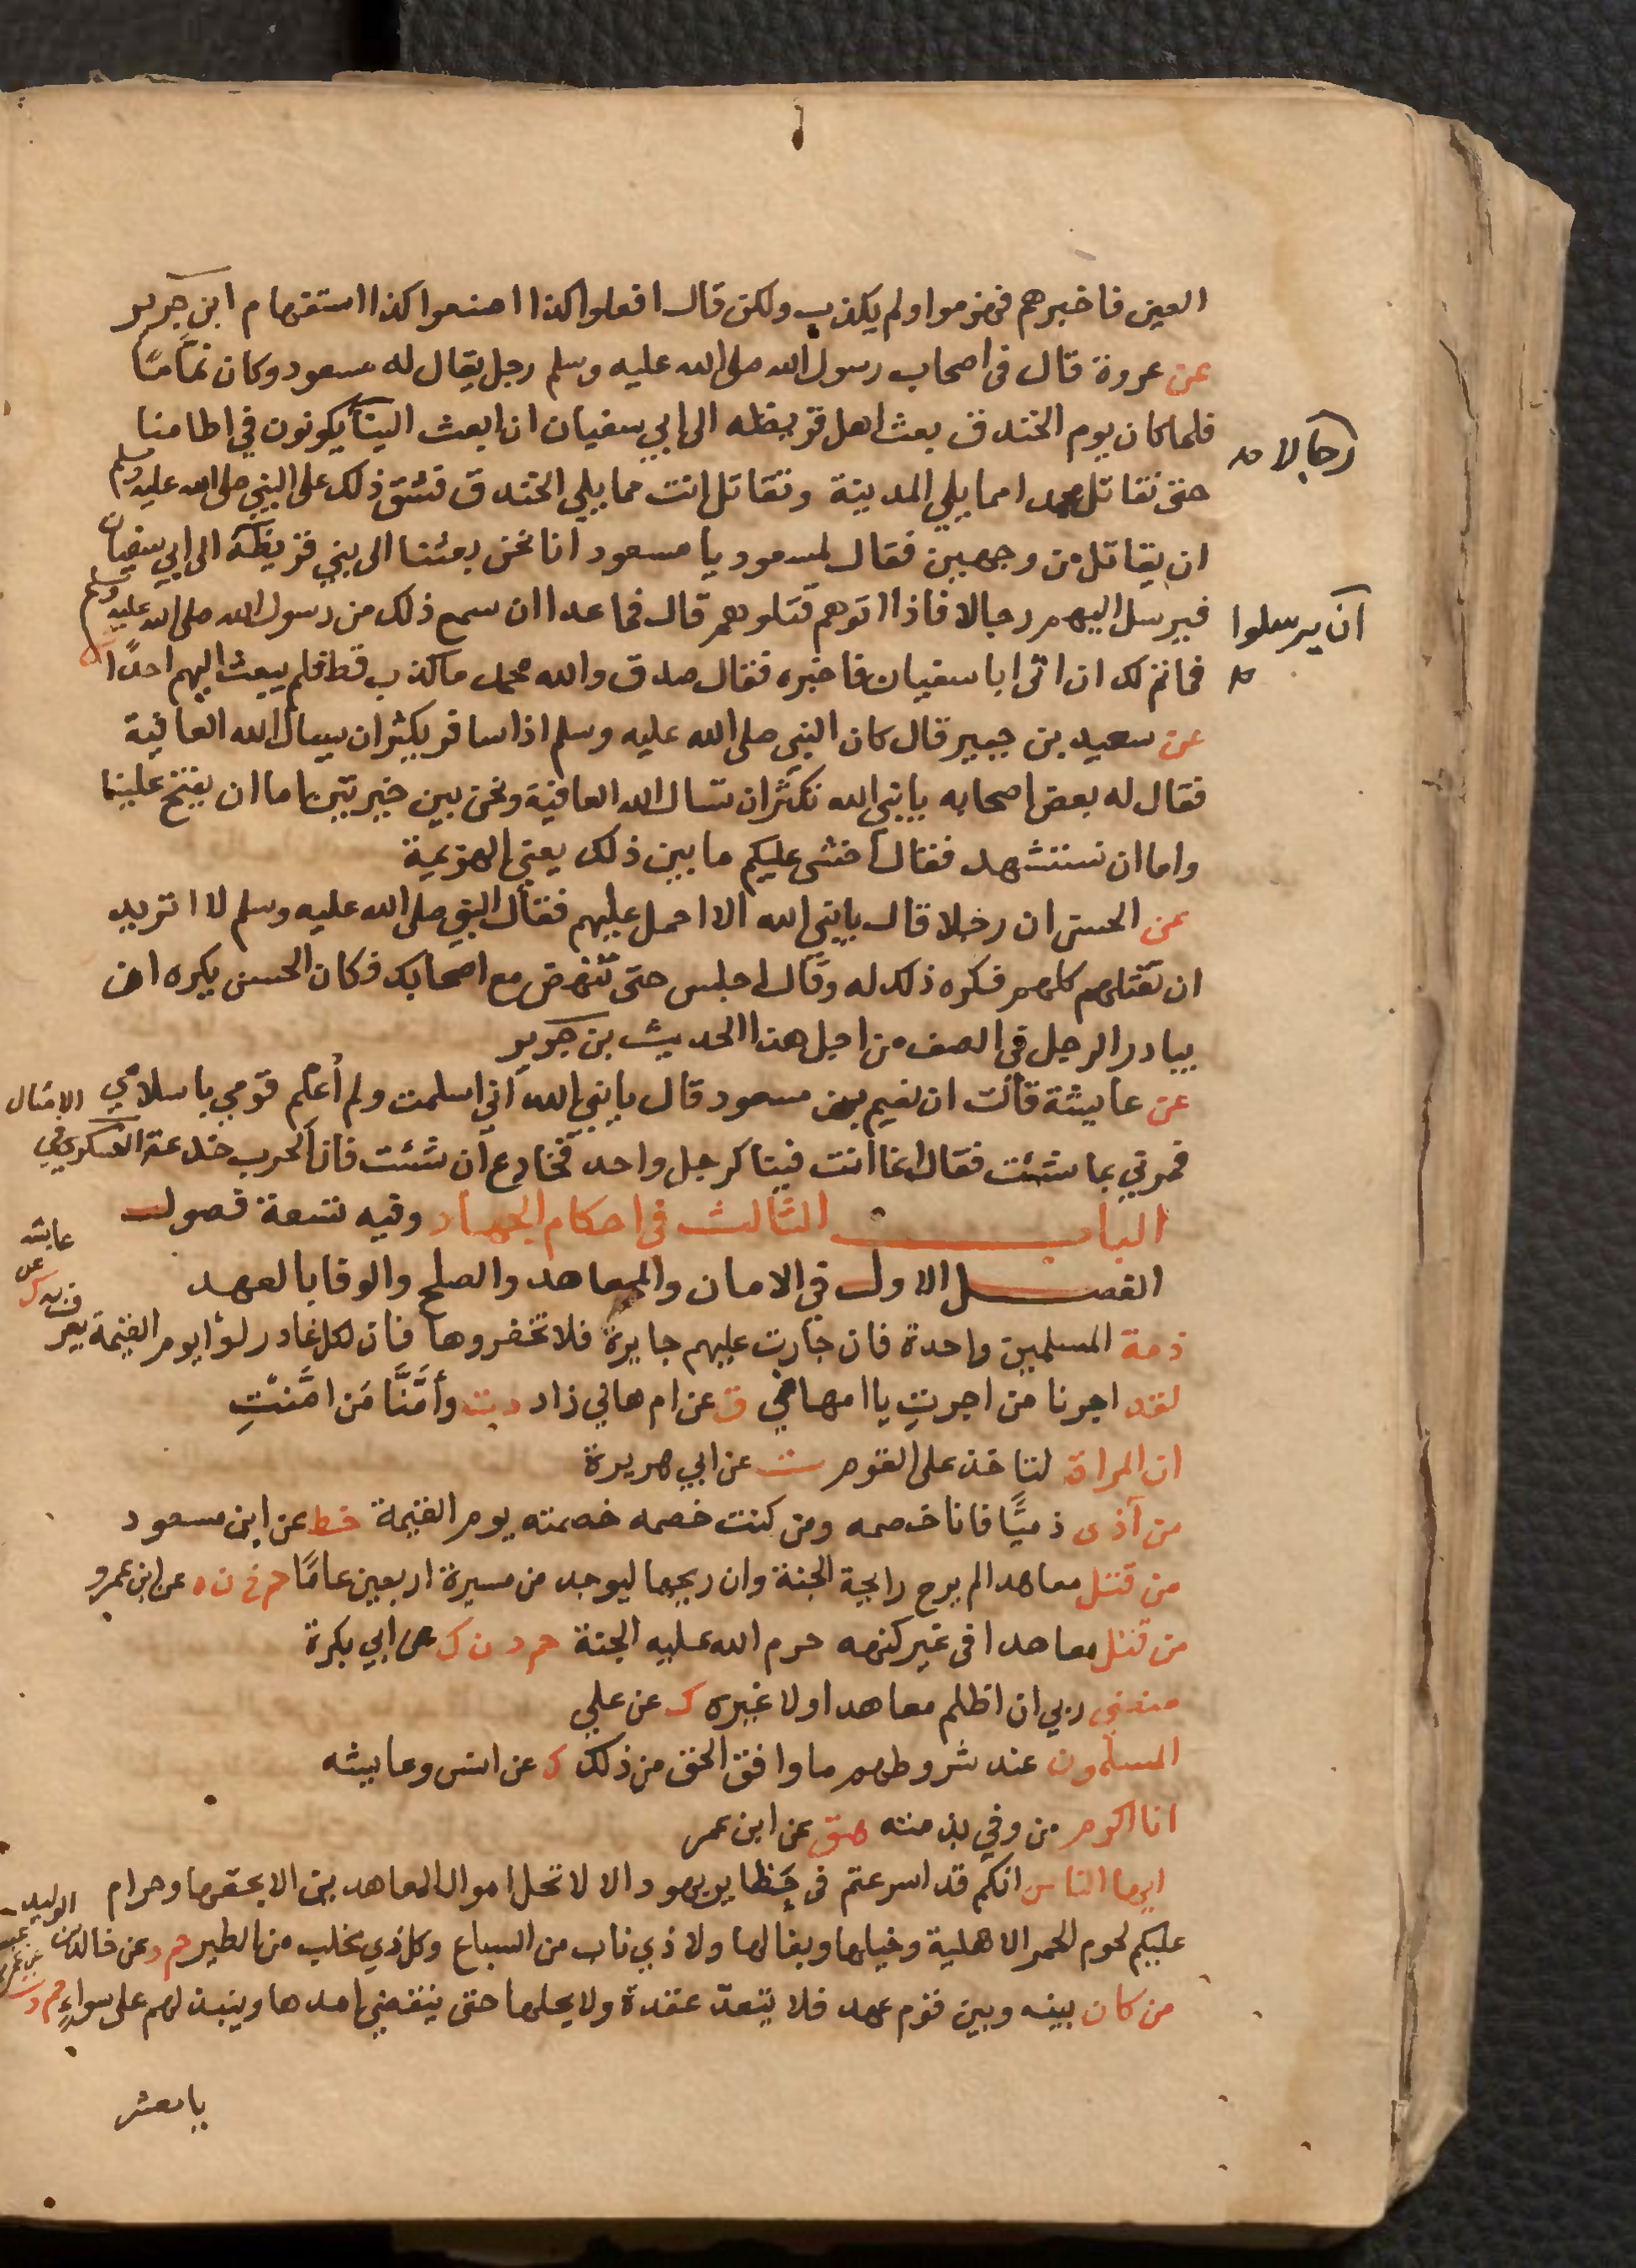 العين فاخبرهم فهزموا ولم يكذب ولكن قال افعلوا كذا اصنعوا كذا استفهام ابن جرير
عن عروة قال فى اصحاب رسول الله صلى الله عليه وسلم رجل يقال له مسعود وكان نمّامًا
فلما كان يوم الخندق بعث اهل قريظه الى ابي سفيان ان ابعث الينا يكونون في اطامنا
رجالا
حتى نقاتل محمدا مما يلي المدينة وتقاتل انت مما يلي الخندق فشق ذلك على النبي صلى الله عليه وسلم
ان يقاتل من وجهين فقال لمسعود يا مسعود انا نحن بعثنا الى بني قريظة الى ابي سفيان
ان يرسلوا
فيرسل اليهم رجالا فاذا اتوهم قتلوهم قال فما عدا ان سمع ذلك من رسول الله صلى الله عليه وسلم
فماتمالك ان اتى ابا سفيان فاخبره فقال صدق والله محمد ما كذب قط فلم يبعث اليهم احدًا
عن سعيد بن جبير قال كان النبي صلى الله عليه وسلم اذا سافر يكثر ان يسال الله العافية
فقال له بعض اصحابه يا نبي الله نكثر ان تسال الله العافية ونحن بين خيرتين اما ان يفتح علينا
واما ان نستشهد فقال اخشى عليكم ما بين ذلك يعني الهزيمة
عن الحسن ان رجلا قال يا نبي الله الا احمل عليهم فقال النبي صلى الله عليه وسلم لا اتريد
ان تقتلهم كلهم فكره ذلك له وقال اجلس حتى تنهض مع اصحابك فكان الحسن يكره ان
يبادر الرجل في الصف من اجل هذا الحديث بن جرير
عن عايشة قالت ان نعيم بن مسعود قال يا نبي الله اني اسلمت ولم أعلم قومي باسلامي
فمرني بما شئت فقال انما انت فينا كرجل واحد فخادع ان شئت فان الحرب خدعة العسكري في الامثال
الباب الثالث فى احكام الجهاد وفيه تسعة فصول
الفصل الاول في الامان والمعاهد والصلح والوفا بالعهد
ذمة المسلمين واحدة فان جارت عليهم جايرة فلا تخفروها فان لكل غادر لوا يوم القيمة يعرف به ك عن عايشه
لقد اجرنا من اجرتِ يا ام هاني ق عن ام هاني زاد د ت وأمَّنَّا مَن امَّنتِ
ان المراة لتاخذ على القوم ت عن ابي هريرة
من آذى ذميًّا فانا خصمه ومن كنت خصمه خصمته يوم القيمة خط عن ابن مسعود
من قتل معاهدا لم يرح رايحة الجنة وان ريحها ليوجد من مسيرة اربعين عامًا حم خ ن ه عن ابن عمرو
من قتل معاهدا فى غير كنهه حرم الله عليه الجنة حم د ن ك عن ابي بكرة
منعني ربي ان اظلم معاهدا ولا غيره ك عن علي
المسلمون عند شروطهم ما وافق الحق من ذلك ك عن انس وعايشه
انا اكرم من وفي بذمته هق عن ابن عمر
ايها الناس انكم قد اسرعتم فى حظاير يهود الا لا تحل اموال المعاهدين الا بحقها وحرام
عليكم لحوم الحمر الاهلية وخيلها وبغالها ولا ذي ناب من السباع وكل ذي مخلب من الطير حم د عن خالد بن الوليد
من كان بينه وبين قوم عهد فلا يتعدّ عقدة ولا يحلها حتى ينقضي امدها وينبذ لهم على سواءٍ حم د ت
يا معشر